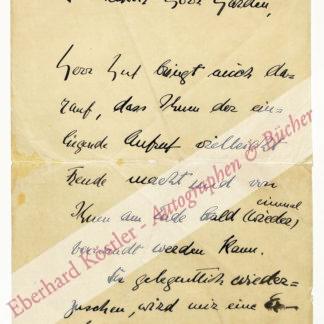 Herr Harden,
Herr Gut bringt mich da-
rauf, dass Ihnen der ein-
liegende Aufruf vielleicht
Freude macht und von
einmal
Ihnen am Ende bald (wieder)
verwandt werden kann.
Sie gelegentlich wieder-
zusehen, wird mir eine
Eberhard Köstler - Autographen & Bücher